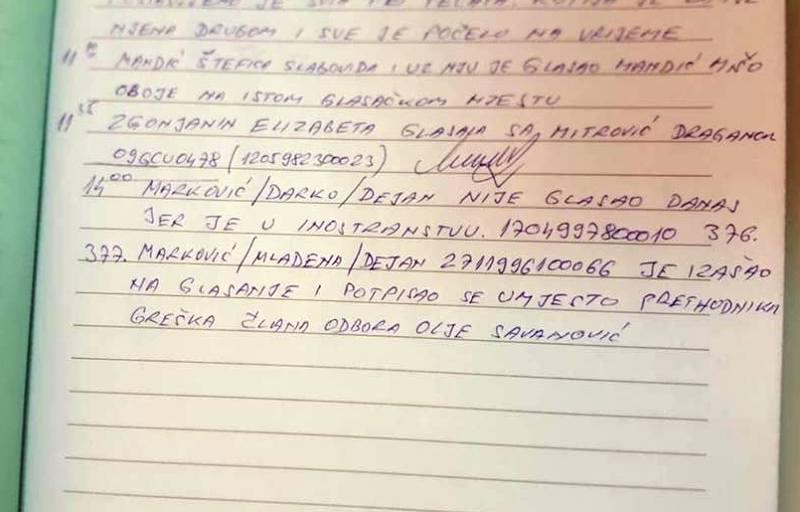 MJENA DRUGOM I SVE JE POČELO NA VRIJEME
11 MANDIĆ ŠTEFICA SLABOVIDA I UZ NJU JE GLASAO MANDIĆ
OBOJE NA ISTOM GLASAČKOM MJESTU
11 35 ZGONJANIN ELIZABETA GLASALA SA MITROVIĆ DRAGANOM
09GCU0478 (1205982300023)
14 00 MARKOVIĆ/DARKO/DEJAN NIJE GLASAO DANAS
JER JE U INOSTRANSTVU. 1704997800010 376.
377. MARKOVIĆ/MLADENA/DEJAN 2711996100066 JE IZAŠAO
NA GLASANJE I POTPISAO SE UMJESTO PRETHODNIKA
GREŠKA ČLANA ODBORA OLJE SAVANOVIĆ